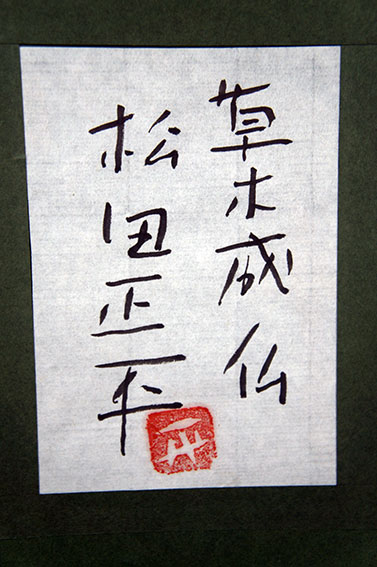 草木成仏
松田正平